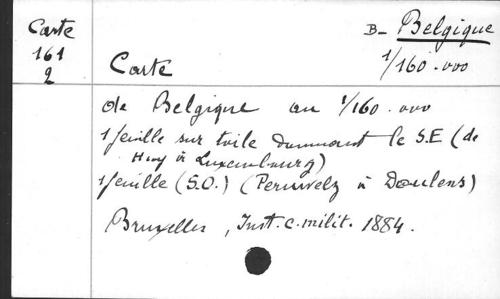 Carte
161
2
B- Belgique
1/160.000
Carte
de Belgique au 1/160.000
1 feuille sur toile donnant le S.E (de
Huy à Luxembourg)
1 feuille (S.O.) (Peruvelz à Doulens)
Bruxelles, Inst. c. milit. 1884.